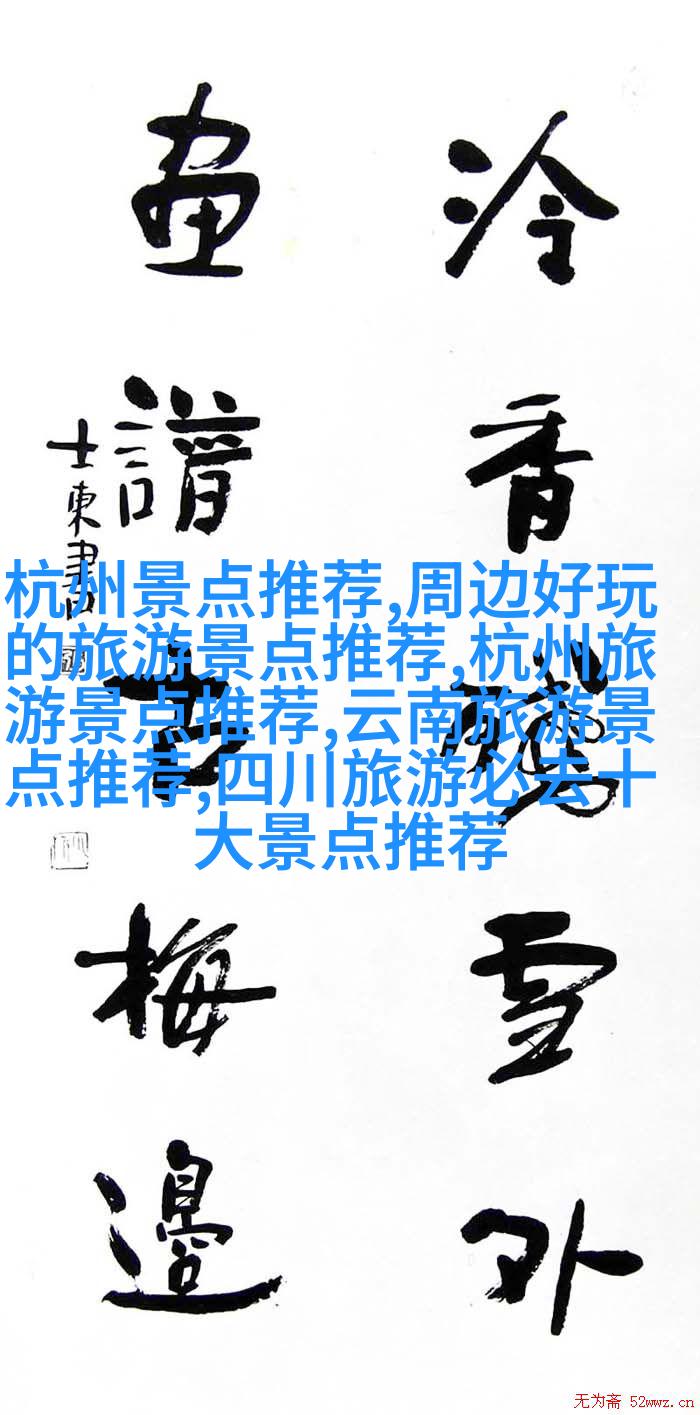 泠香
雪外
畫譜
梅邊
士東書
杭州景点推荐,周边好玩
的旅游景点推荐,杭州旅
游景点推荐,云南旅游景
点推荐,四川旅游必去十
大景点推荐
无为斋 52wwz.cn